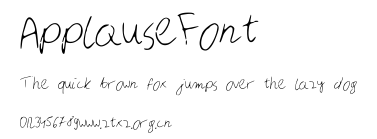 ApplauseFont
The quick brown fox jumps over the lazy dog
0123456789www.ztxz.org.cn